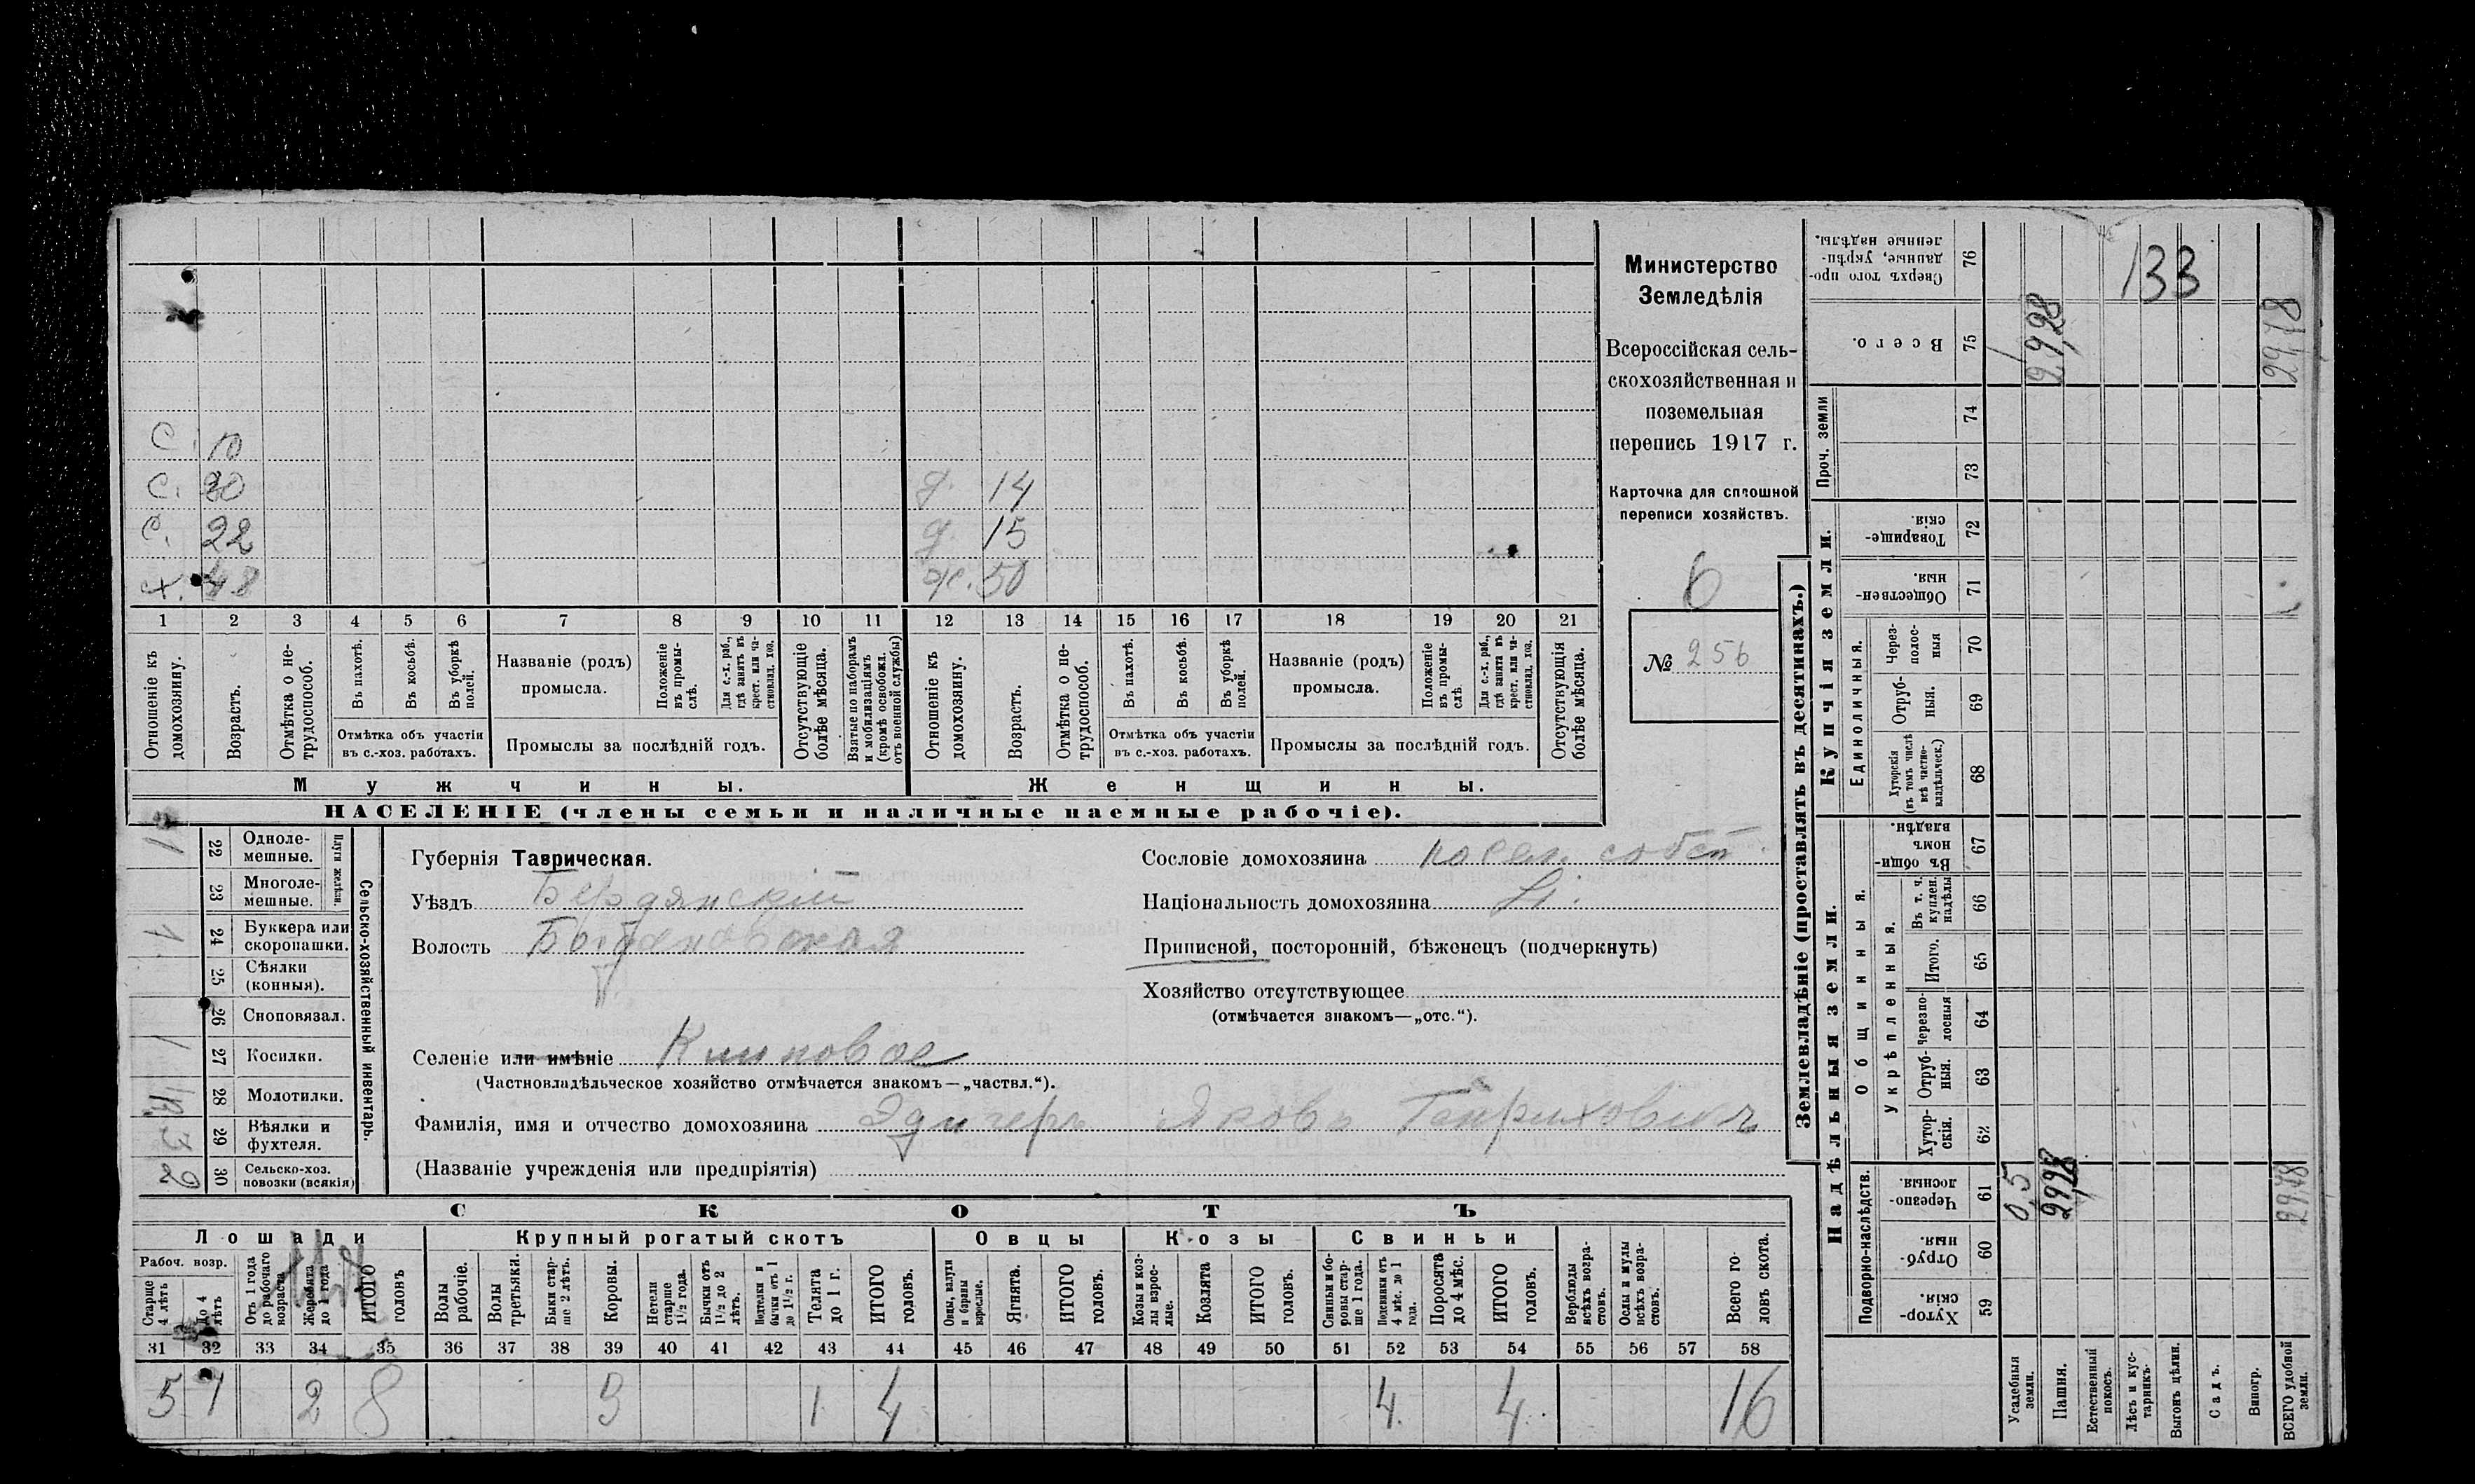 С. 10
С. 20 Д. 14
С. 22 Д. 15
х. 48 ж. 50
1 2 3 4 5 6 7 8 9 10 11 12 13 14 15 16 17 18 19 20 21
Отношеніе къ домохозяину.
Возрастъ.
Отмѣтка о не-
трудоспособ.
Въ пахотѣ.
Въ косьбѣ.
Въ уборкѣ полей.
Отмѣтка объ участіи
въ с.-хоз. работахъ.
Названіе (родъ)
промысла.
Положеніе въ промы-
слѣ.
Для с.-х. раб., гдѣ занятъ въ крест. или ча-
стновлад. хоз.
Промыслы за послѣдній годъ.
Отсутствующіе болѣе мѣсяца.
Взятые по наборамъ и мобилизаціямъ (кромѣ освобожд. отъ военной службы)
Отношеніе къ домохозяину.
Возрастъ.
Отмѣтка о не-
трудоспособ.
Въ пахотѣ.
Въ косьбѣ.
Въ уборкѣ полей.
Отмѣтка объ участіи
въ с.-хоз. работахъ.
Названіе (родъ)
промысла.
Положеніе въ промы-
слѣ.
Для с.-х. раб., гдѣ занята въ крест. или ча-
стновлад. хоз.
Промыслы за послѣдній годъ.
Отсутствующія болѣе мѣсяца.
Мужчины.
Женщины.
НАСЕЛЕНІЕ (члены семьи и наличные наемные рабочіе).
Министерство
Земледѣлія
Всероссійская сель-
скохозяйственная и
поземельная
перепись 1917 г.
Карточка для сплошной
переписи хозяйствъ.
6
№ 256
Сельско-хозяйственный инвентарь.
Плуги желѣзн.
22 Одноле-
мешные.
23 Многоле-
мешные.
24 Буккера или
скоропашки.
25 Сѣялки
(конныя).
26 Сноповязал.
27 Косилки.
28 Молотилки.
29 Вѣялки и
фухтеля.
30 Сельско-хоз.
повозки (всякія)
1
1
2
Губернія Таврическая.
Уѣздъ Бердянскій
Волость Богдановская
Селеніе или имѣніе Клиновое
(Частновладѣльческое хозяйство отмѣчается знакомъ—„частвл.“).
Фамилія, имя и отчество домохозяина Эдигеръ Яковъ Генриховичъ
(Названіе учрежденія или предпріятія)
Сословіе домохозяина посел. собст.
Національность домохозяина
Приписной, посторонній, бѣженецъ (подчеркнуть)
Хозяйство отсутствующее
(отмѣчается знакомъ—„отс.“).
СКОТЪ
Лошади
Крупный рогатый скотъ
Овцы
Козы
Свиньи
Рабоч. возр.
Старше 4 лѣтъ
До 4 лѣтъ
Отъ 1 года до рабочаго возраста
Жеребята до 1 года
ИТОГО головъ
Волы рабочіе.
Волы третьяки.
Быки стар-
ше 2 лѣтъ.
Коровы.
Нетели старше 1½ года.
Бычки отъ 1½ до 2 лѣтъ.
Подтелки и бычки отъ 1 до 1½ г.
Телята до 1 г.
ИТОГО головъ.
Овцы, валухи и бараны взрослые.
Ягнята.
ИТОГО головъ.
Козы и коз-
лы взрос-
лые.
Козлята
ИТОГО головъ.
Свиньи и бо-
ровы стар-
ше 1 года.
Подсвинки отъ 4 мѣс. до 1 года.
Поросята до 4 мѣс.
ИТОГО головъ.
Верблюды всѣхъ возра-
стовъ.
Ослы и мулы всѣхъ возра-
стовъ.
Всего го-
ловъ скота.
31 32 33 34 35 36 37 38 39 40 41 42 43 44 45 46 47 48 49 50 51 52 53 54 55 56 57 58
5 1 2 8 3 1 4 4 4 16
Землевладѣніе (проставлять въ десятинахъ.)
Купчія земли.
Надѣльныя земли.
Сверхъ того про-
данные, укрѣп-
ленные надѣлы. 76
Всего. 75
Проч. земли 74 73
Товарище-
скія. 72
Обществен-
ныя. 71
Единоличныя.
Через-
полос-
ныя 70
Отруб-
ныя. 69
Хуторскія
(въ томъ числѣ
всѣ частно-
владѣльческ.) 68
Общинныя.
Въ общи-
номъ
владѣн. 67
Укрѣпленныя.
Въ т. ч.
куплен.
надѣлы 66
Итого. 65
Черезпо-
лосныя 64
Отруб-
ныя. 63
Хутор-
скія. 62
Подворно-наслѣдств.
Черезпо-
лосныя. 61
Отруб-
ныя. 60
Хутор-
скія. 59
133
29,28
29,78
0,5
29,28
29,78
Усадебныя земли.
Пашня.
Естественный покосъ.
Лѣсъ и кус-
тарникъ.
Выгонъ цѣлин.
Садъ.
Виногр.
ВСЕГО удобной земли.